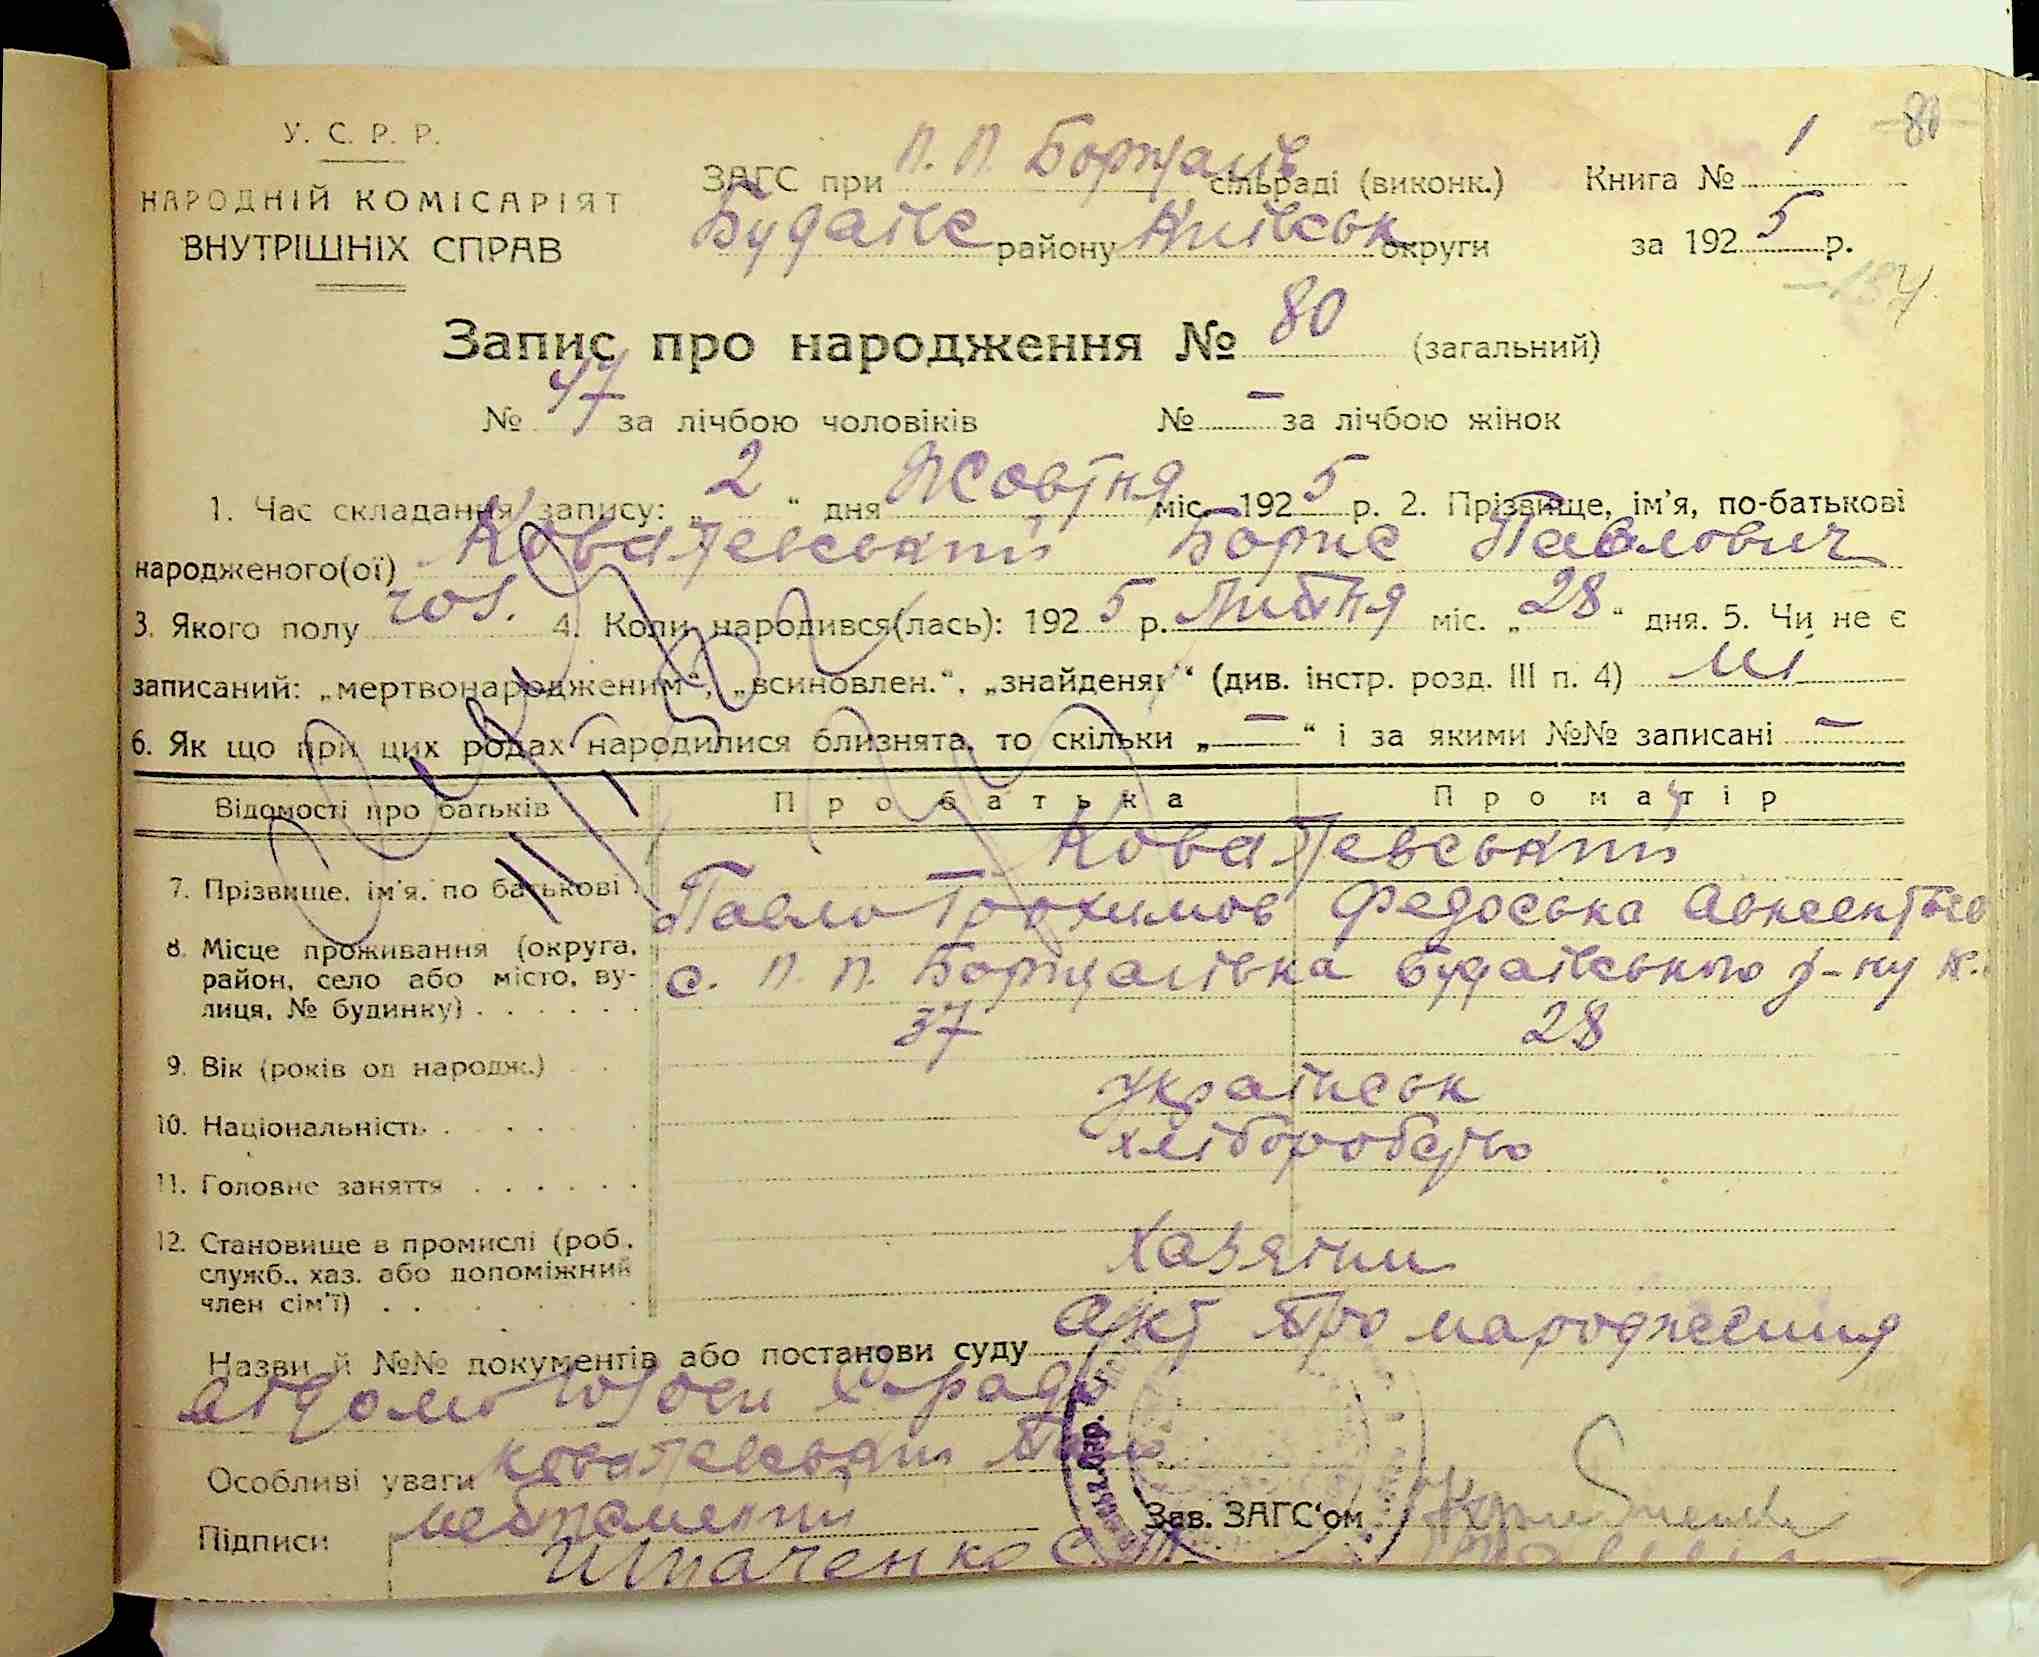 У. С. Р. Р.
НАРОДНІЙ КОМІСАРІЯТ
ВНУТРІШНІХ СПРАВ
ЗАГС при П. П. Борщагів сільраді (виконк.)
Будаївс району Київськ округи
Книга № 1
за 1925 р.
80
Запис про народження № 80 (загальний)
№ 47 за лічбою чоловіків № — за лічбою жінок
1. Час складання запису: „2“ дня Жовтня міс. 1925 р. 2. Прізвище, ім'я, по-батькові
народженого(ої) Ковалевський Борис Павлович
3. Якого полу чол. 4. Коли народився(лась): 1925 р. Липня міс. „28“ дня. 5. Чи не є
записаний: „мертвонародженим“, „всиновлен.“, „знайденя“ (див. інстр. розд. III п. 4) ні
6. Як що при цих родах народилися близнята, то скільки „—“ і за якими №№ записані —
Відомості про батьків Про батька Про матір
Ковалевський
7. Прізвище, ім'я, по батькові Павло Трохимов Федоська
8. Місце проживання (округа, район, село або місто, вулиця, № будинку) с. П. П. Борщагівка Будаївського р-ну
9. Вік (років од народж.) 37 28
10. Національність Українськ
11. Головне заняття хліборобство
12. Становище в промислі (роб. служб., хаз. або допоміжний член сім'ї) Хазяїни
Назви й №№ документів або постанови суду Акт про народження
Особливі уваги Ковалевський
Підписи Зав. ЗАГС'ом